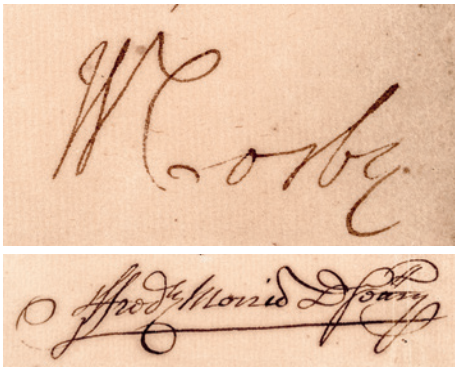 W Cosby
ffredk Morris D Secry